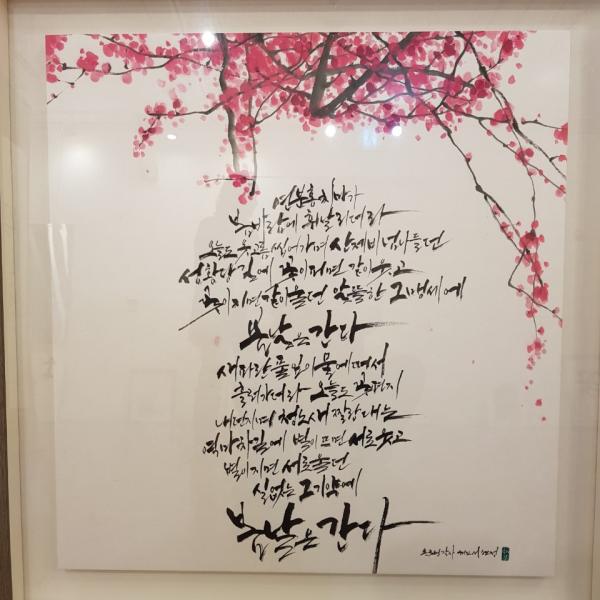 연분홍 치마가
봄바람에 휘날리더라
오늘도 옷고름 씹어가며 산제비 넘나들던
성황당 길에 꽃이 피면 같이 웃고
꽃이 지면 같이 울던 알뜰한 그 맹세에
봄날은 간다
새파란 풀잎이 물에 떠서
흘러가더라 오늘도 꽃편지
내던지며 청노새 짤랑대는
역마차 길에 별이 뜨면 서로 웃고
별이 지면 서로 울던
실없는 그 기약에
봄날은 간다